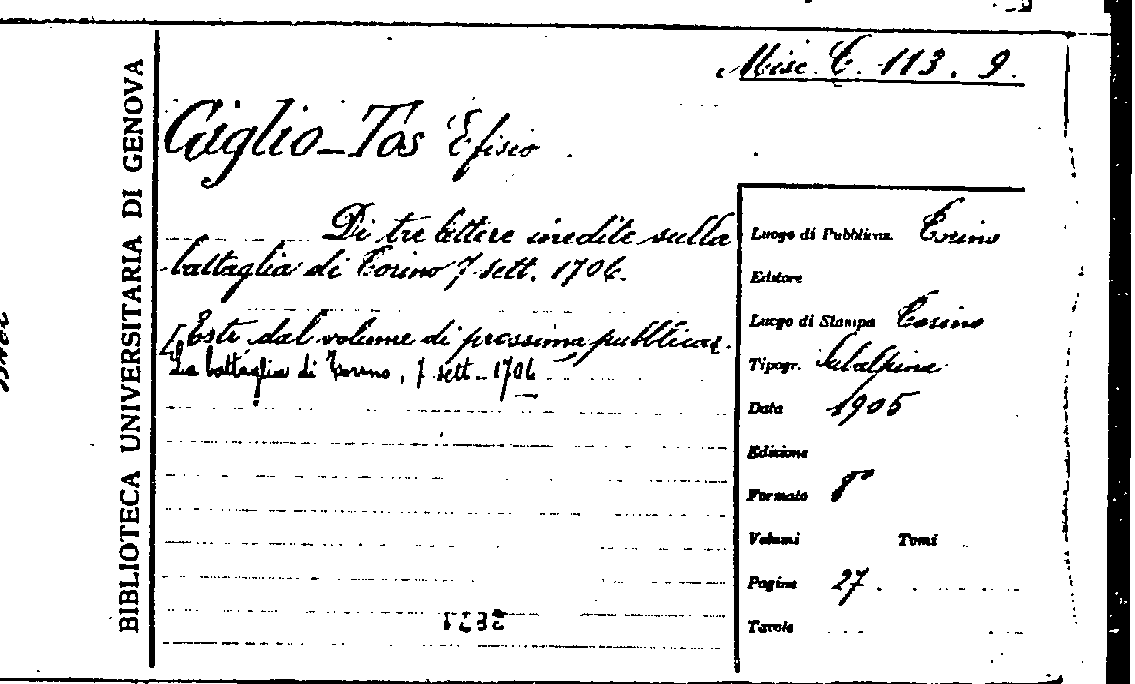 BIBLIOTECA UNIVERSITARIA DI GENOVA
Misc. C. 113. 9.
Giglio-Tos Efisio
Di tre lettere inedite sulla
battaglia di Torino 7 sett. 1706.
[Estr. dal volume di prossima pubblicaz.
La battaglia di Torino, 7 sett. 1706
Luogo di Pubblicaz. Torino
Editore
Luogo di Stampa Torino
Tipogr. Subalpina
Data 1905
Edizione
Formato 8°
Volumi Tomi
Pagine 27.
Tavole